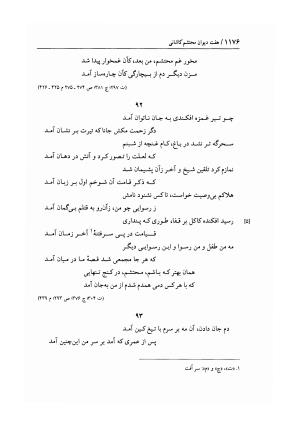 ۱۱۷۶ / هفت دیوان محتشم کاشانی
مخور غم محتشم، من بعد، کآن غمخوار پیدا شد
مزن دیگر دم از بیچارگی کآن چاره‌ساز آمد
۹۲
چو تیر غمزه افکندی به جان ناتوان آمد
دگر زحمت مکش جانا که تیرت بر نشان آمد
سحرگه تر نشد در باغ، کام غنچه از شبنم
که لعلت را تصور کرد و آبش در دهان آمد
نمازم کرد تلقین شیخ و آخر زآن پشیمان شد
که ذکر قامت آن شوخم اول بر زبان آمد
هلاکم بی‌وصیت خواست، تا کس نشنود نامش
ز رسوایی چو من، زآن‌رو به قتلم بی‌گمان آمد
رسید افکنده کاکل بر قفا، طوری که پنداری
قیامت در پی سرفتنهٔ۱ آخر زمان آمد
مه من طفل و من رسوا و این رسوایی دیگر
که هر جا مجمعی شد قصهٔ ما در میان آمد
همان بهتر که باشم، محتشم، در کنج تنهایی
که با هر کس دمی همدم شدم از من به‌جان آمد
۹۳
دم جان دادن، آن مه بر سرم با تیغ کین آمد
پس از عمری که آمد بر سر من این‌چنین آمد